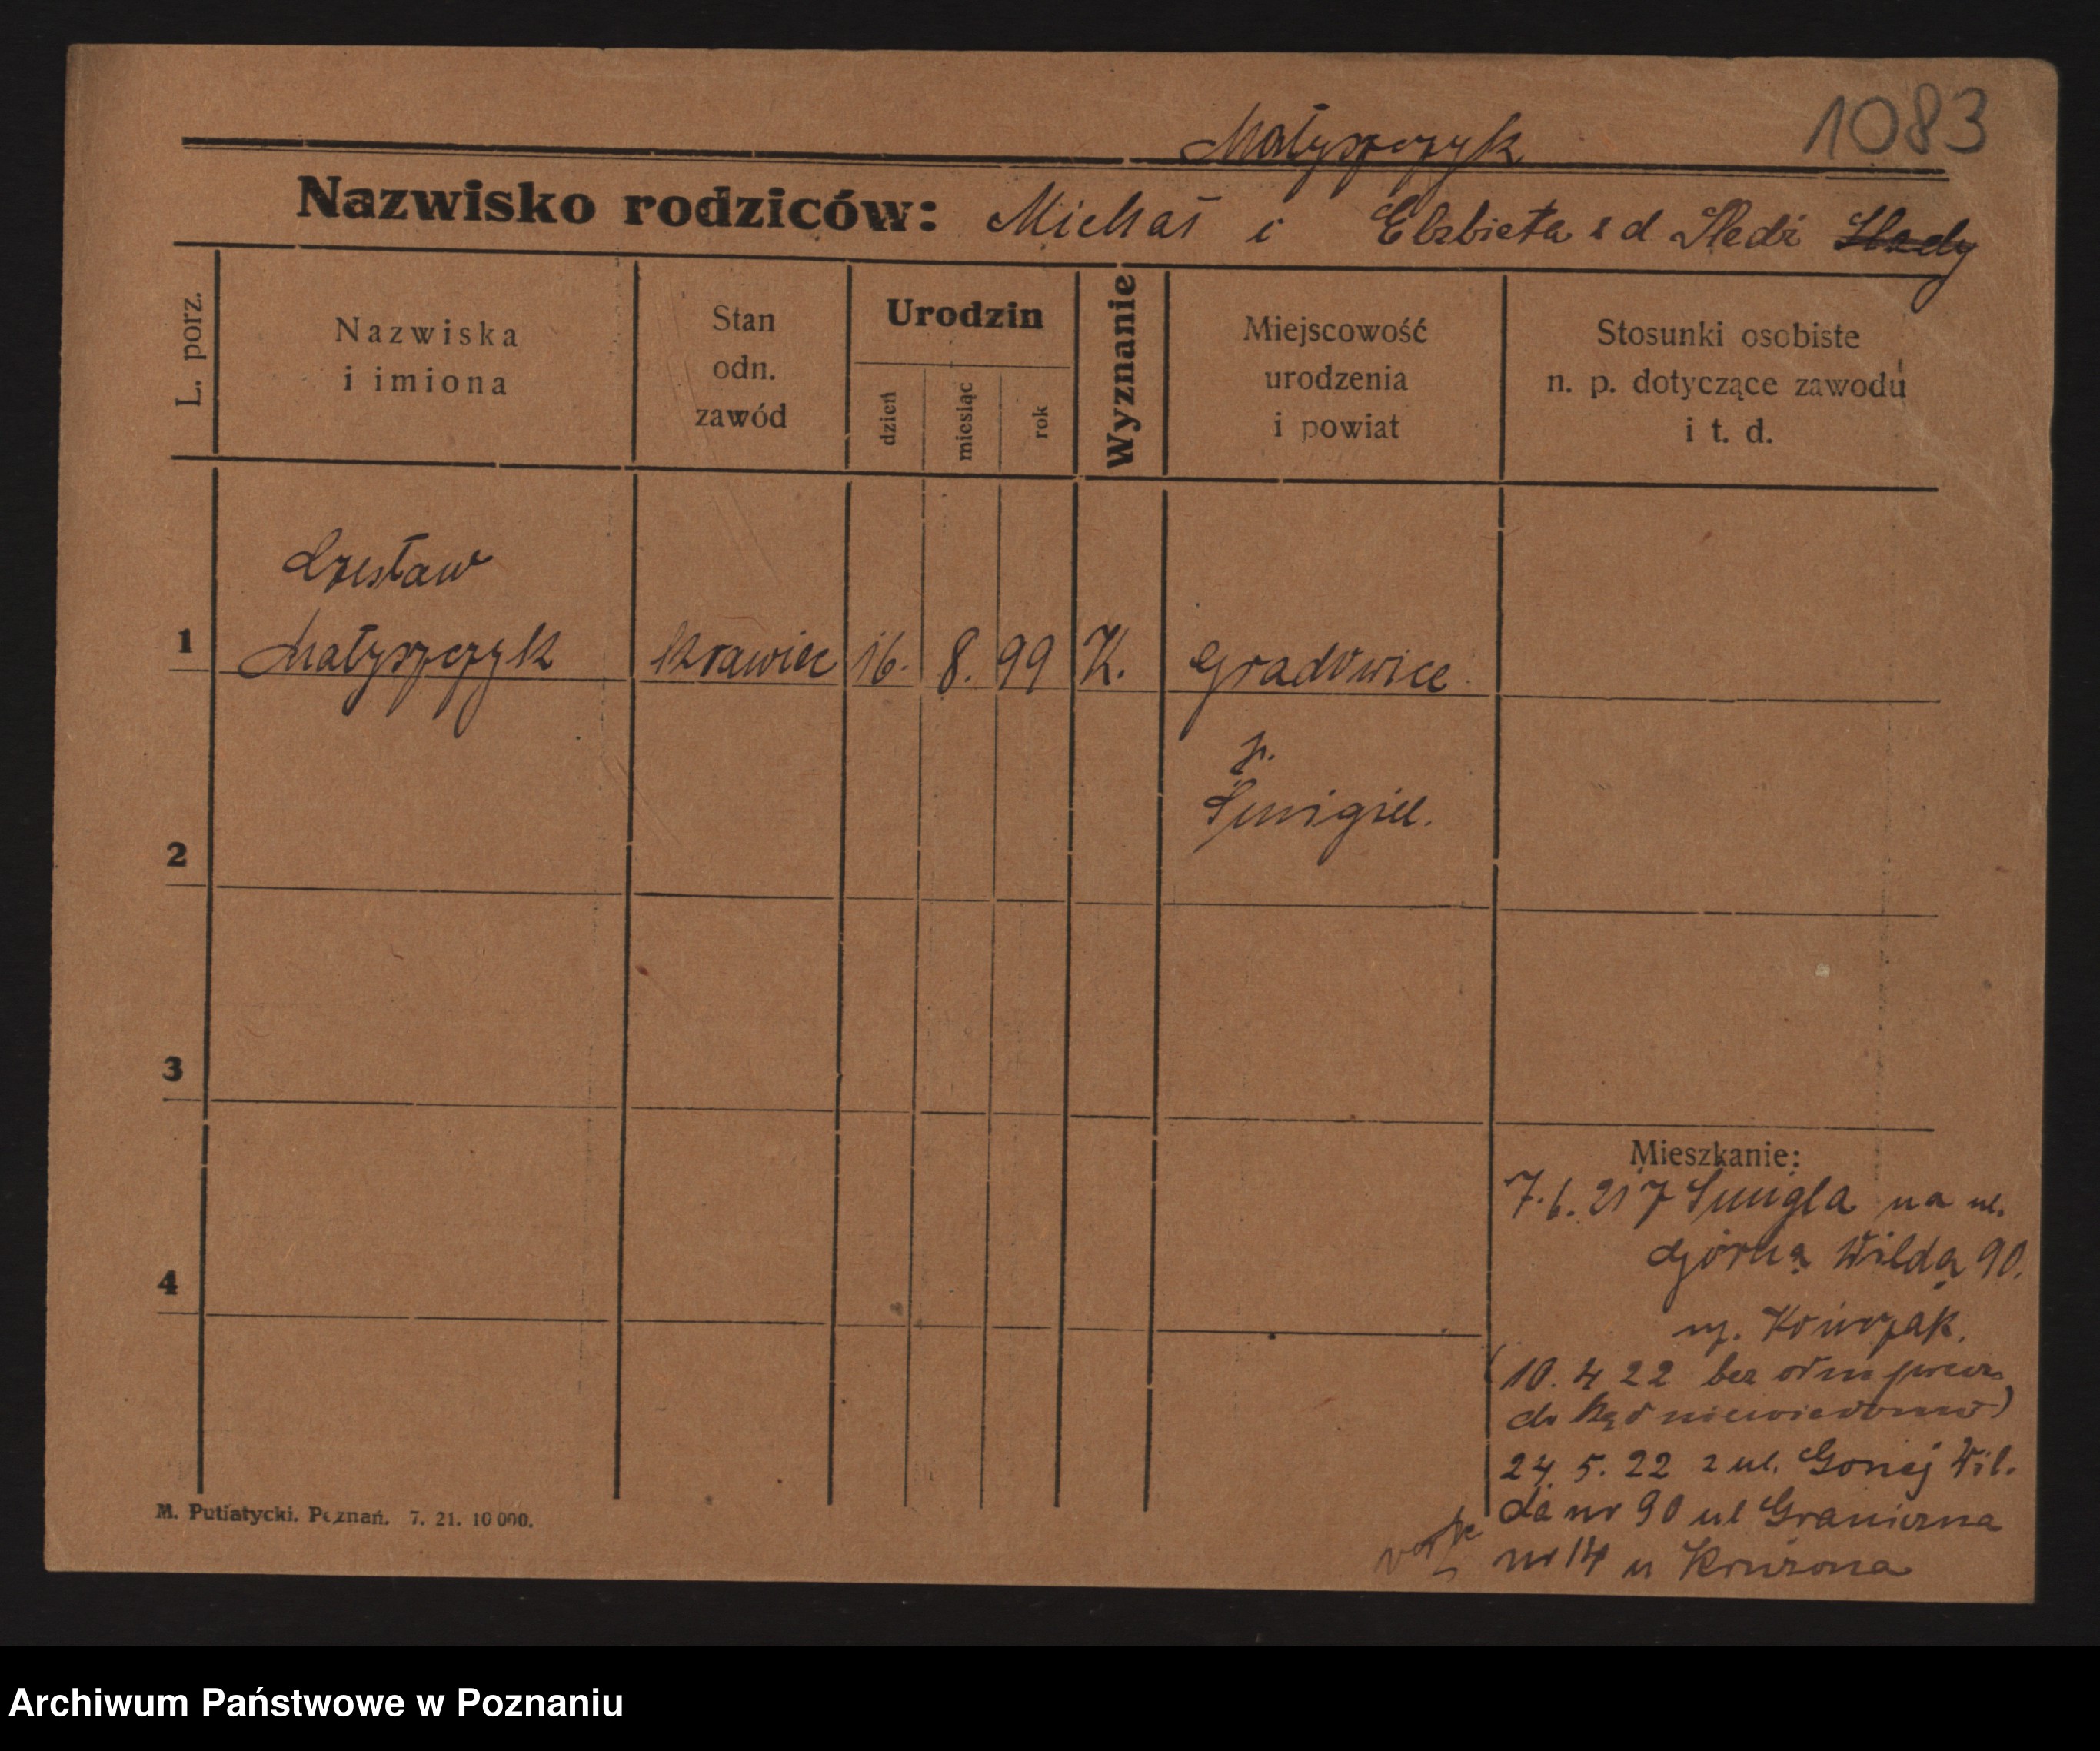 1083
Małyszczyk
Nazwisko rodziców: Michał i Elżbieta z d Śledź
L. porz.
Nazwiska
i imiona
Stan
odn.
zawód
Urodzin
dzień
miesiąc
rok
Wyznanie
Miejscowość
urodzenia
i powiat
Stosunki osobiste
n. p. dotyczące zawodu
i t. d.
Czesław
1 Małyszczyk krawiec 16. 8. 99 K. Gradowice
p.
Śmigiel.
2
3
4
Mieszkanie:
7. 6. 21 z Śmigla na ul.
Górną Wildą 90.
(10. 4 22 bez
dokąd niewiadomo)
24. 5. 22 z ul. Gonej Wil.
da nr 90 ul Graniczna
nr 14 u
M. Putiatycki. Poznań. 7. 21. 10 000.
Archiwum Państwowe w Poznaniu